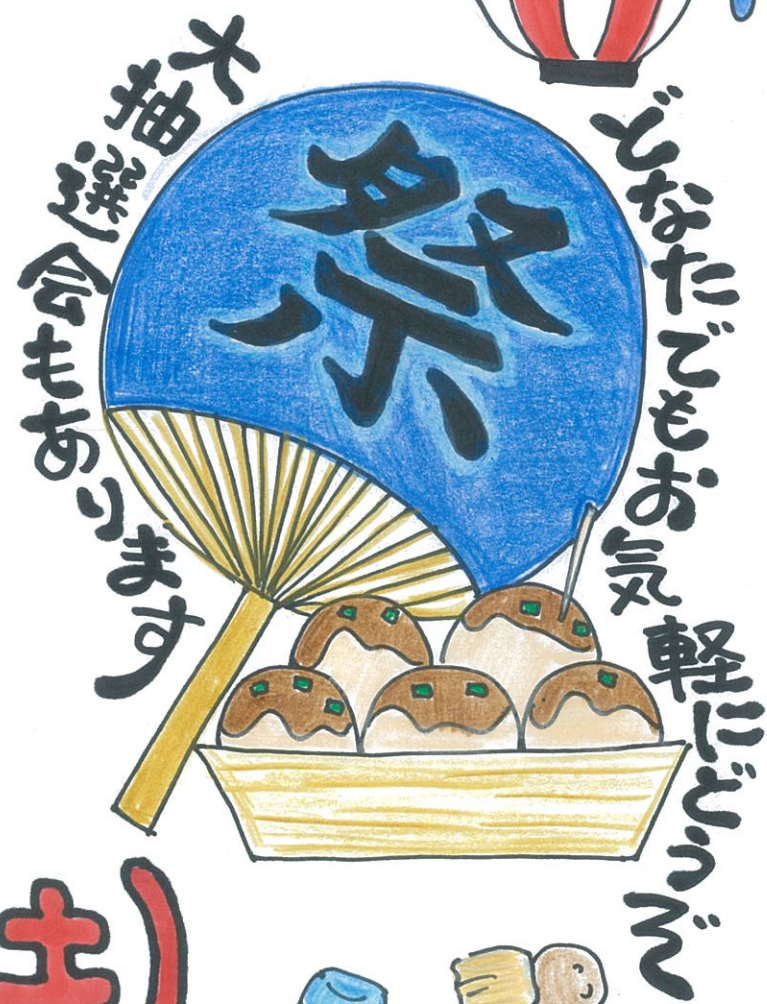 どなたでもお気軽にどうぞ
祭
大抽選会もあります